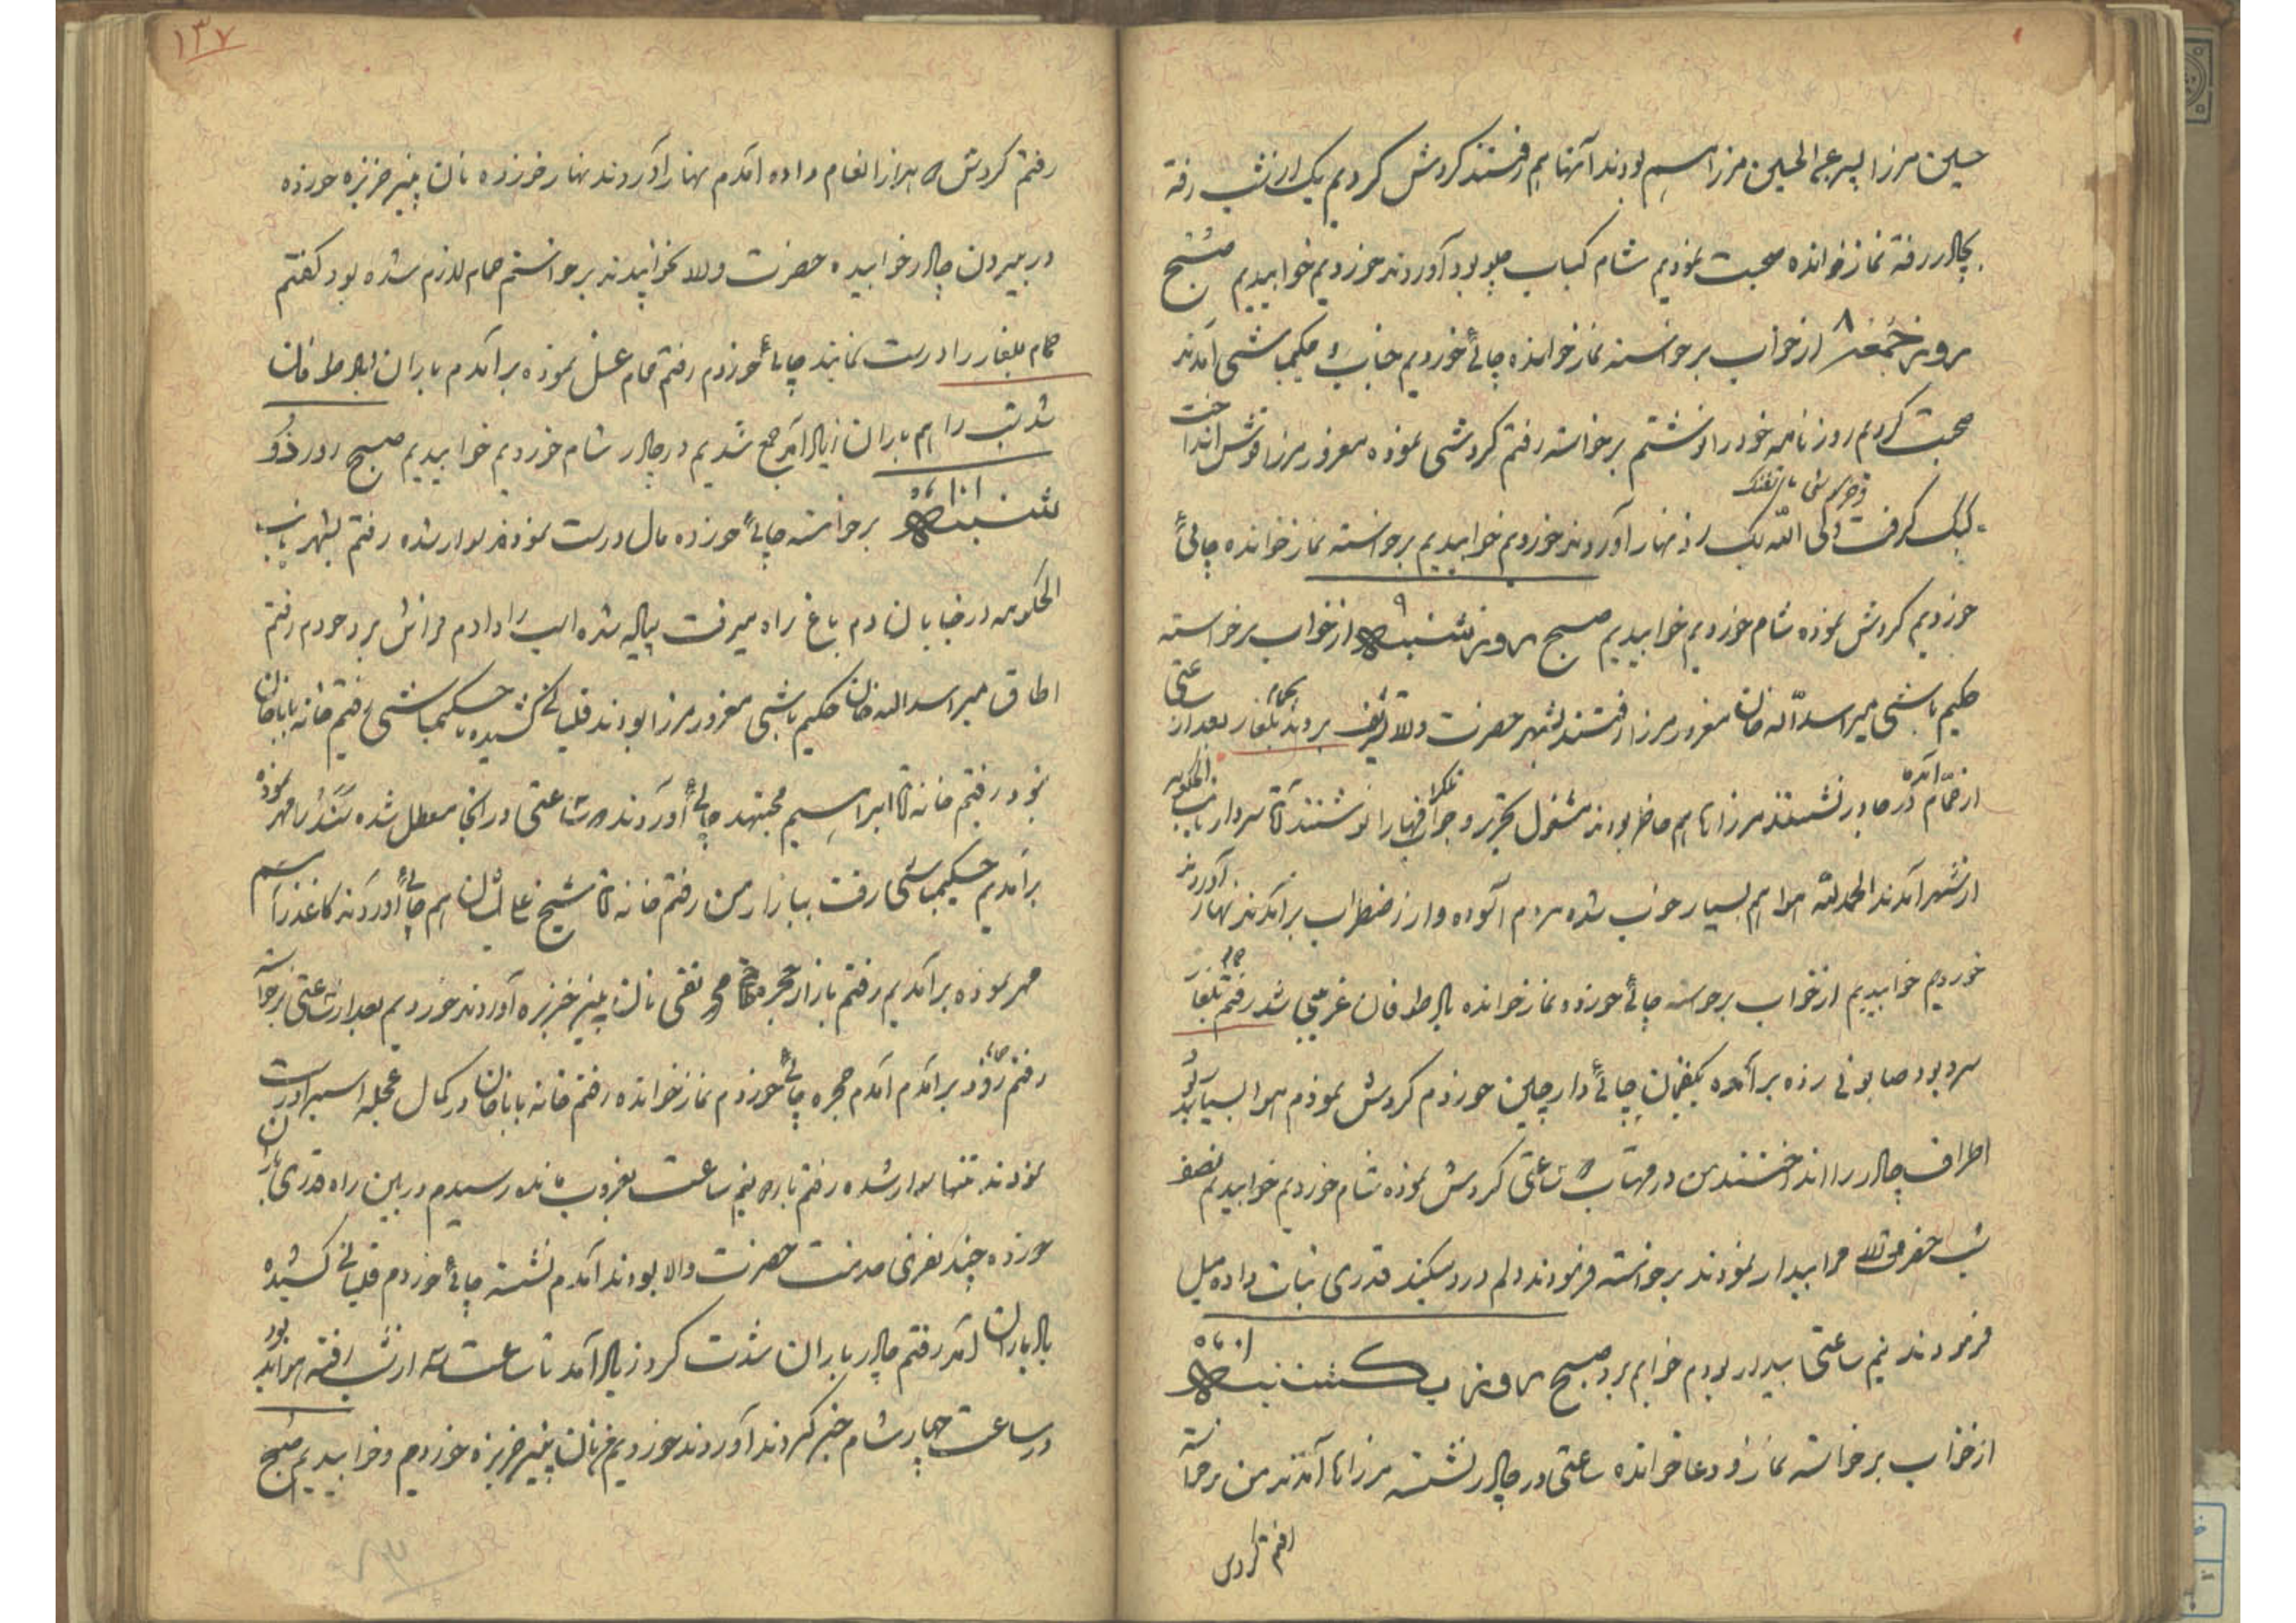 حسین مرزا پسر عبدالحسین مرزا سهم بودند آنها هم رفتند کردش کردیم یک از شب رفته
بچالدر رفته نماز خوانده صحبت نمودیم شام کباب پلو بود آوردند خوردیم خوابیدیم صبح
روز جمعه ۸ از خواب برخواسته نماز خوانده چائی خوردیم جناب حکیمباشی آمدند
صحبت کردیم روزنامه خود را نوشتم برخواسته رفتم کردشی نموده مغرور مرزا قوش انداخت
کبک گرفت ولی الله بک زد نهار آوردند خوردیم خوابیدیم برخواسته نماز خوانده چائی
خوردیم کردش نموده شام خوردیم خوابیدیم صبح روز شنبه ۹ از خواب برخواسته
حکیم باشی میر اسد الله خان مغرور مرزا رفتند بشهر حضرت والا تشریف بردند بحمام بلغار بعد از ساعتی
از حمام آمده در چادر نشستند مرزاها هم حاضر بودند مشغول تحریر و جواب تلگرافها را نوشتند آقا سردار نایب الحکومه
از شهر آمدند الحمد لله هوا هم بسیار خوب شده مردم آسوده و از اضطراب برآمدند نهار آوردند
خوردیم خوابیدیم از خواب برخواسته چائی خورده نماز خوانده باد طوفان غریبی شد رفتم حمام بلغار
سرد بود صابونی زده برآمده یکفنجان چائی دارچین خوردم کردش نمودم هوا بسیار سرد بود
اطراف چادر را انداختند من در مهتاب ساعتی کردش نموده شام خوردیم خوابیدیم نصف
شب حضرت والا مرا بیدار نمودند برخواسته فرمودند دلم درد میکند قدری نبات داده میل
فرمودند نیم ساعتی بیدار بودم خوابم برد صبح روز یکشنبه ۱۰ ماه
از خواب برخواسته نماز و دعا خوانده ساعتی در چادر نشسته مرزاها آمدند من برخواسته
رفتم کردش
۱۳۷
رفتم کردش ۵ هزار انعام داده آمدم نهار را آوردند نهار خورده نان پنیر خربزه خورده
در بیرون چادر خوابیده حضرت والا نخوابیدند برخواستم حمام لازم شده بود گفتم
حمام بلغار را درست نمایند چائی خوردم رفتم حمام غسل نموده برآمدم باران باد طوفان
شد شب را هم باران زیاد آمد جمع شدیم در چادر شام خوردیم خوابیدیم صبح روز دو
شنبه ۱۱ ماه برخواسته چائی خورده مال درست نمودند سوار شده رفتم بشهر نایب
الحکومه در خیابان دم باغ راه میرفت پیاده شده اسب را دادم فراش برد خودم رفتم
اطاق میر اسد الله خان حکیم باشی مغرور مرزا بودند قلیانی کشیده با حکیمباشی رفتیم خانه بابا خان
نبود رفتیم خانه آقا ابراهیم مجتهد چائی آوردند ساعتی در آنجا معطل شده سند را مهر نموده
برآمدیم حکیمباشی رفت ببازار من رفتم خانه آقا شیخ علی ایشان هم چائی آوردند کاغذ را
مهر نموده برآمدیم رفتم بازار حجره محمد تقی نان پنیر خربزه آوردند خوردیم بعد از ساعتی برخواسته
رفتم حمام زود برآمدم آمدم حجره چائی خوردم نماز خوانده رفتم خانه بابا خان در کمال عجله اسب را درست
نمودند تنها سوار شده رفتم نیم ساعت بغروب مانده رسیدم در بین راه قدری باران
خورده چند نفری خدمت حضرت والا بودند آمدم نشسته چائی خوردم قلیانی کشیده
باد باران آمد رفتم چادر باران شدت کرد زیاد آمد تا ساعت سه از شب رفته هوا بد بود
در ساعت چهار شام خبر کردند آوردند خوردیم نان پنیر خربزه خوردم و خوابیدیم صبح